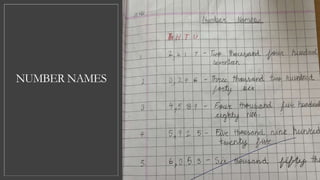 NUMBER NAMES
Number Names
H T U
2, 4 1 7 - Two thousand four hundred
seventeen
2 3, 2 4 6 - Three thousand two hundred
forty six
3 4, 5 8 9 - Four thousand five hundred
eighty nine
4 5, 9 2 5 - Five thousand nine hundred
twenty five
5 6, 0 5 3 - Six thousand fifty